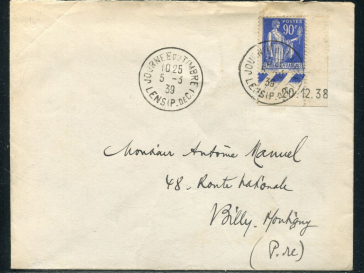 POSTES
90c
JOURNEE DU TIMBRE
10 25
5 - 3
39
LENS (P. DE C.)
JOURNEE DU TIMBRE
39
LENS (P. DE C.)
20.12.38
Monsieur Antoine Manuel
48 - Route Nationale
Billy-Montigny
(P. de